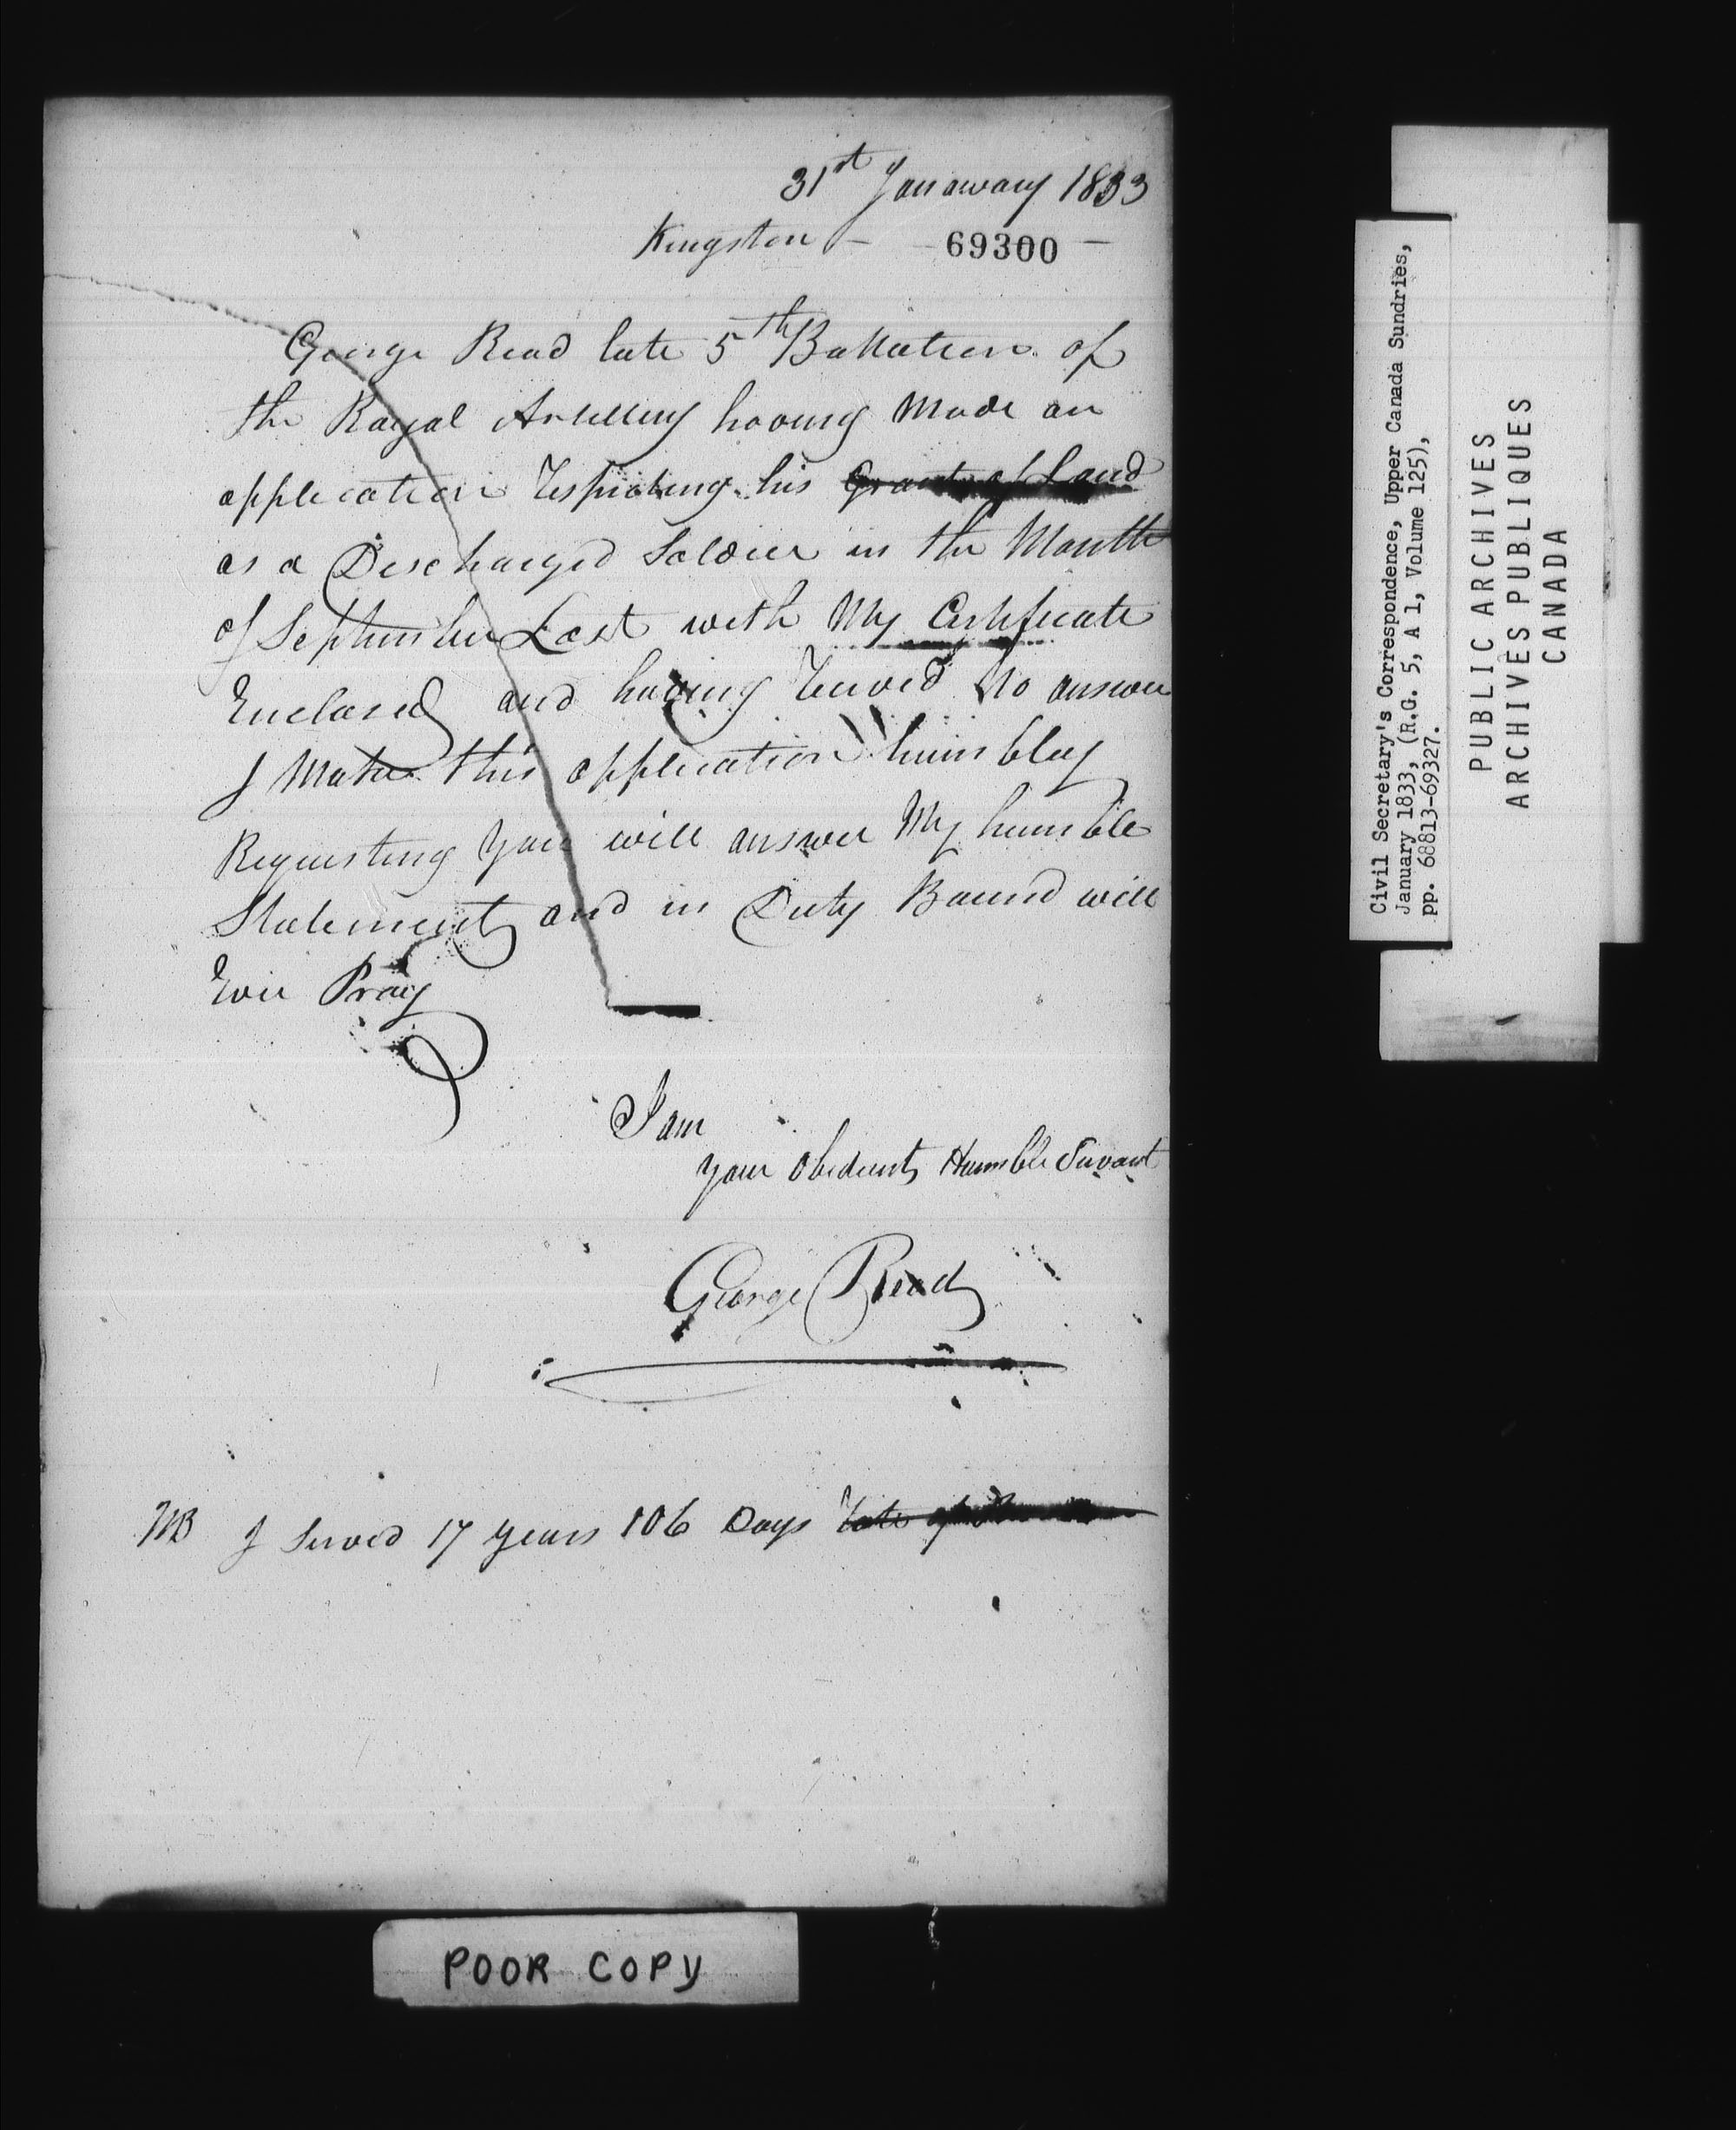 31st Janawary 1833
Kingston — 69300 —
George Read late 5th Battalion of
the Royal Artillery having Made an
application Respecting his Grant of Land
as a Discharged Soldier in the Month
of September Last with My Certificate
Enclosed and having Received No answer
I Make this application humblay
Requesting you will answer My humble
Statement and in Duty Bound will
Ever Pray
I am
your Obedient Humble Servant
George Read
NB I Served 17 years 106 Days late of
POOR COPY
Civil Secretary's Correspondence, Upper Canada Sundries,
January 1833, (R.G. 5, A 1, Volume 125),
pp. 68813-69327.
PUBLIC ARCHIVES
ARCHIVES PUBLIQUES
CANADA